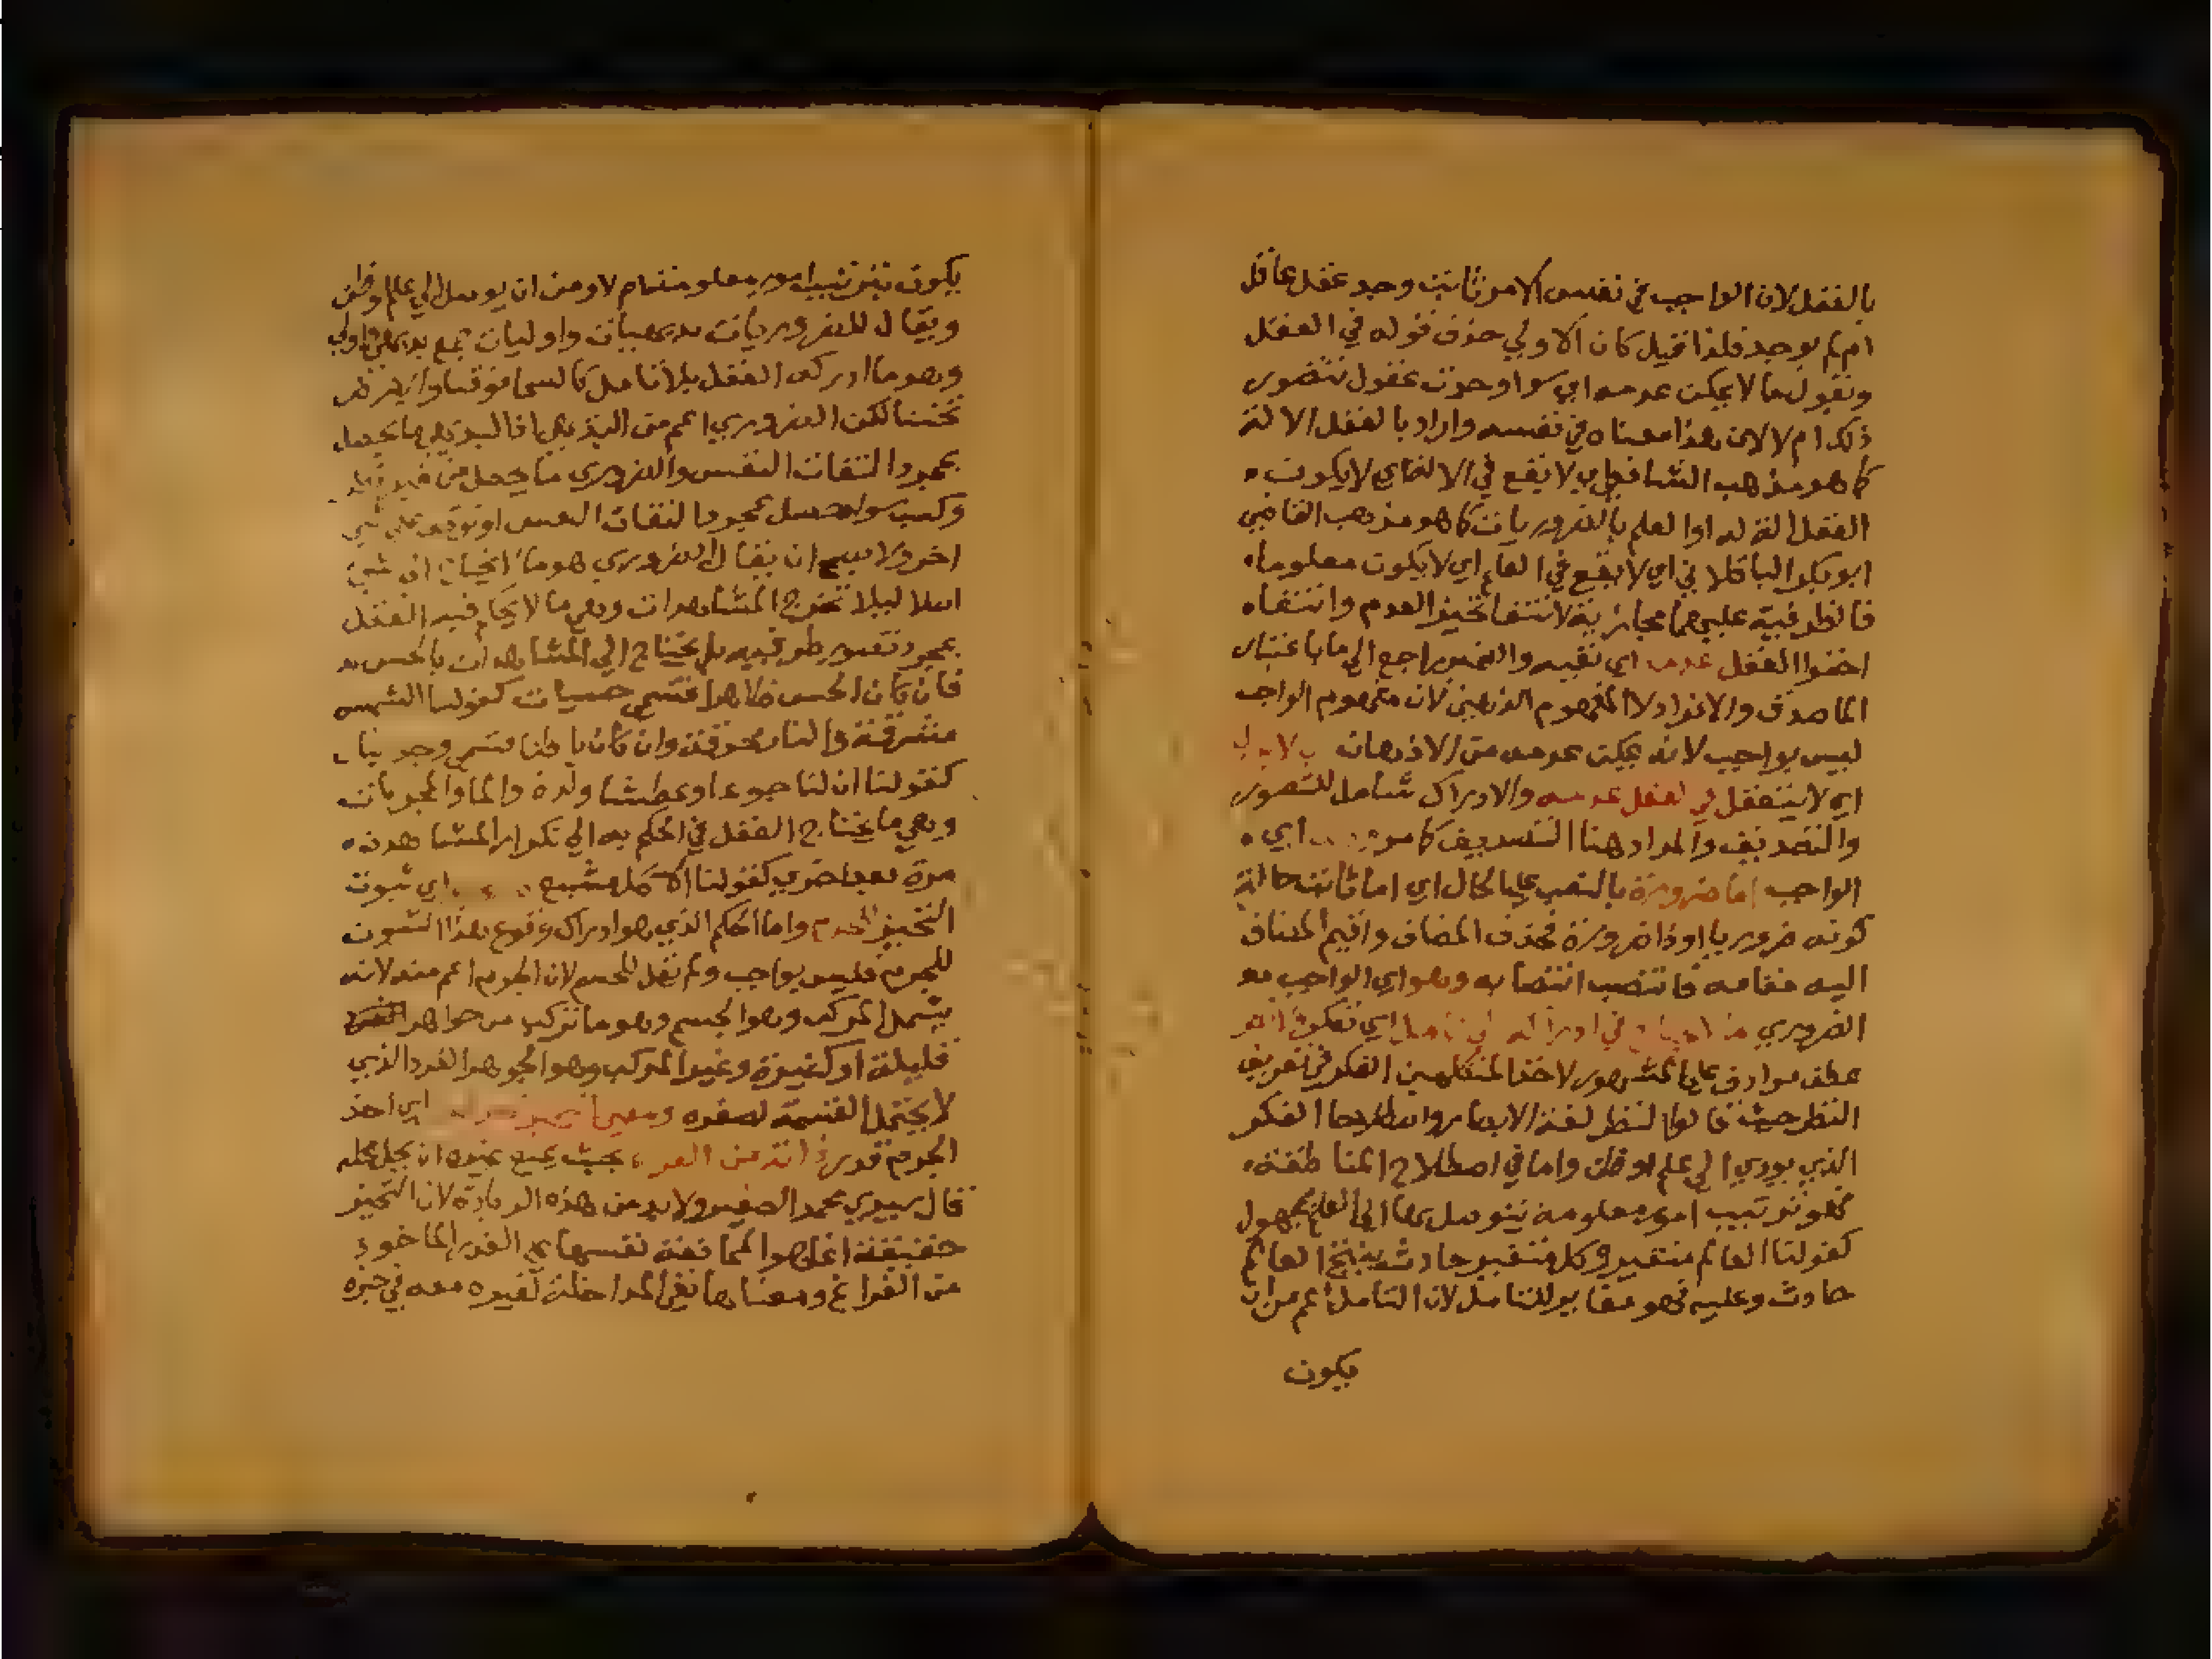 بالعقل لان الواجب في نفس الامر ثابت وجد عقل عاقل
ام لم يوجد فلذا قيل كان الاولي حذف قوله في العقل
ويقول ما لا يمكن عدمه اي سوا وجدت عقول تتصور
ذلك ام لا لان هذا معناه في نفسه واراد بالعقل الالة
كما هو مذهب الشافعي اي لا يقع في الالة اي لا يكون
العقل الة له او العلم بالضروريات كما هو مذهب القاضي
ابو بكر الباقلاني اي لا يقع في العلم اي لا يكون معلوما
فالظرفية عليهما مجازية لانتفا تحيز العدم وانتفاء
احتوا العقل عدمه اي نفيه والضمير راجع الي ما باعتبار
الماصدق والافراد لا المفهوم الذهني لان مفهوم الواجب
ليس بواجب لانه يمكن عدمه من الاذهان
اي لا يتعقل في العقل عدمه والادراك شامل للتصور
والتصديق والمراد هنا التصديق كما مر اي
الواجب اما ضرورة بالنصب علي الحال اي اما ثابت حالة
كونه ضروريا او ذا ضرورة فحذف المضاف واقيم المضاف
اليه مقامه فانتصب انتصابه وهو اي الواجب
الضروري ما لا يحتاج في ادراكه الي تامل اي تفكر
عطف مرادف علي المشهور لاخذ المتكلمين الفكر في تعريف
النظر حيث قالوا النظر لغة الابصار واصطلاحا الفكر
الذي يودي الي علم او ظن واما في اصطلاح المناطقة
فهو ترتيب امور معلومة يتوصل بها الي العلم بمجهول
كقولنا العالم متغير وكل متغير حادث ينتج العالم
حادث وعليه فهو مغاير للتامل لان التامل اعم من ان
يكون
يكون بترتيب امور معلومة ام لا ومن ان يوصل الي علم او ظن
ويقال للضروريات بديهيات واوليات جمع بديهي واولي
وهو ما ادركه العقل بلا تامل كالسما فوقنا والارض
تحتنا لكن الضروري اعم من البديهي اذ البديهي ما يحصل
بمجرد التفات النفس والضروري ما يحصل من غير نظر
وكسب سوا حصل بمجرد التفات النفس او توقف علي شي
اخر ولا يصح ان يقال الضروري هو ما لا يحتاج الي شي
اصلا ليلا تخرج المشاهدات وهي ما لا يحكم فيه العقل
بمجرد تصور طرفيه بل يحتاج الي المشاهدات بالحس
فان كان الحس ظاهرا فتسمي حسيات كقولنا الشمس
مشرقة والنار محرقة وان كان باطنا فتسمي وجدانيات
كقولنا ان لنا جوعا وعطشا ولذة والما والمجربات
وهي ما يحتاج العقل في الحكم به الي تكرار المشاهدة
مرة بعد اخري كقولنا الاكل مشبع اي ثبوت
التحيز للجرم واما الحكم الذي هو ادراك وقوع هذا الثبوت
للجرم فليس بواجب ولم يقل للجسم لان الجرم اعم منه لانه
يشمل المركب وهو الجسم وهو ما تركب من جواهر
قليلة او كثيرة وغير المركب وهو الجوهر الفرد الذي
لا يحتمل القسمة لصغره ومعني اي اخذ
الجرم قدر ذاته من الفراغ بحيث يمنع غيره ان يحل محله
قال سيدي محمد الصغير ولا بد من هذه الزيادة لان التحيز
حقيقة انما هو الممانعة نفسها علي القدر الماخوذ
من الفراغ ومعناها نفي المداخلة لغيره معه في حيزه